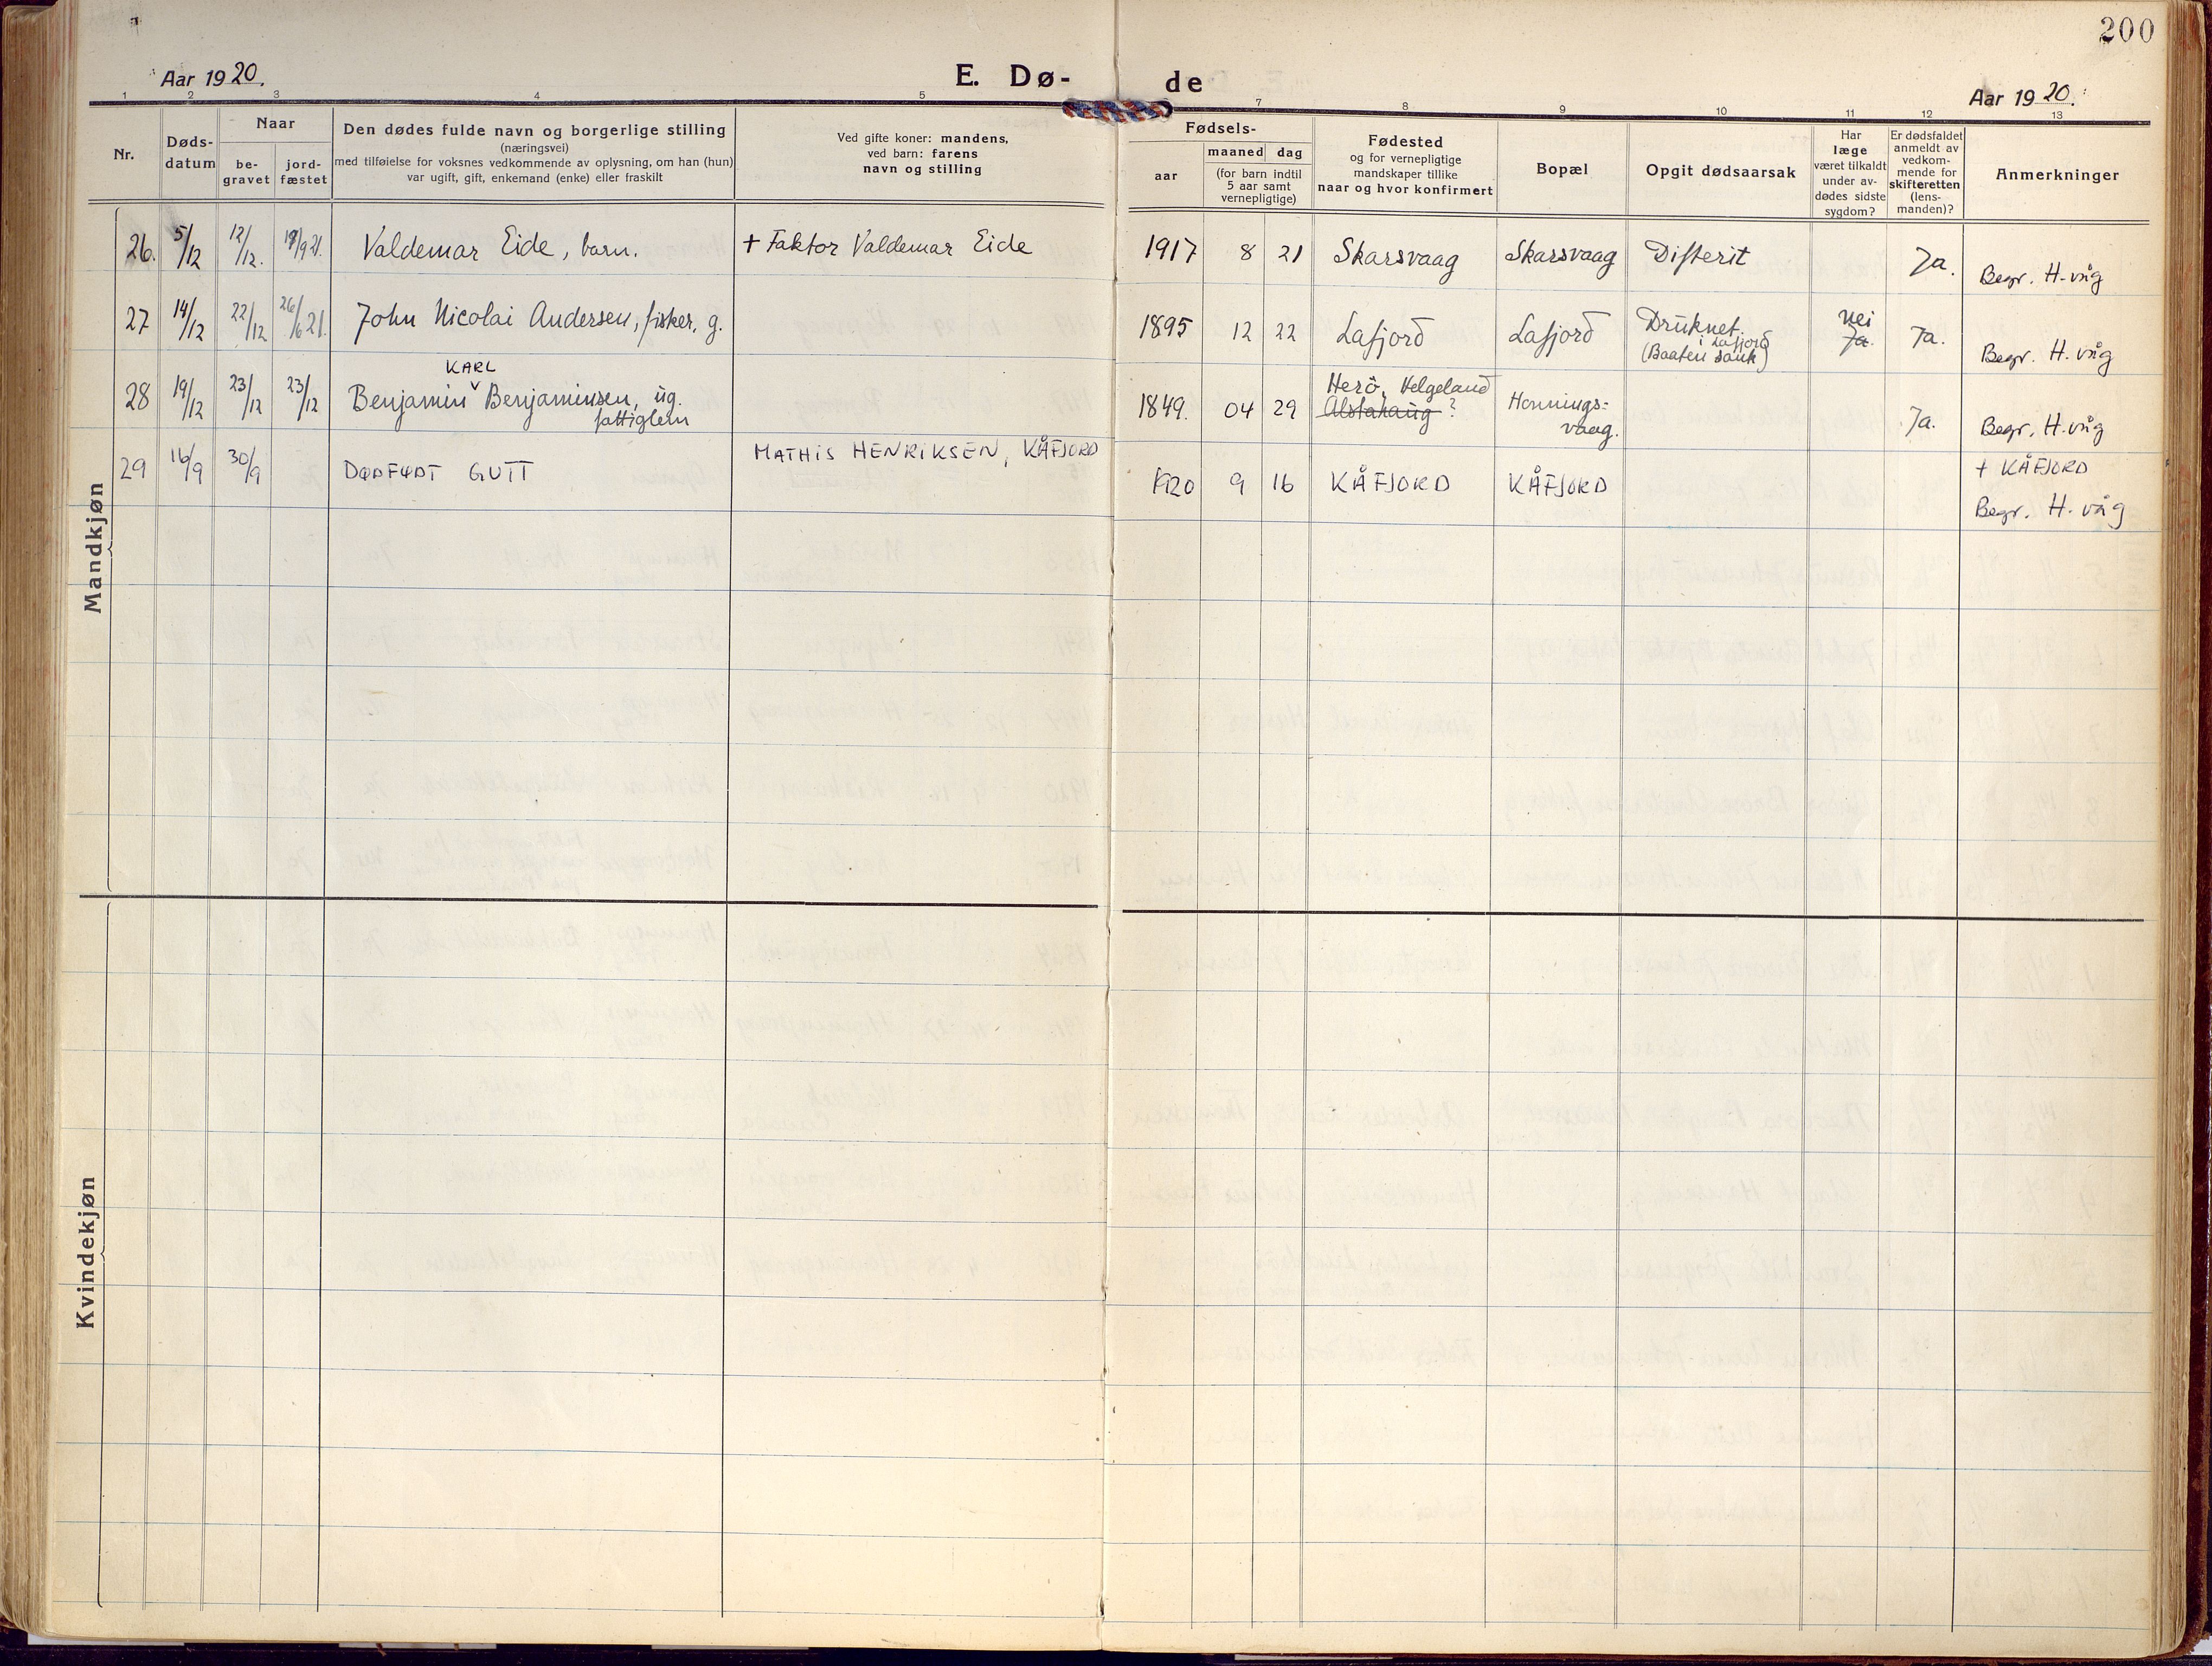 200
Aar 1920.
E. Dø-
de
Aar 1920.
1 2 3 4 5 7 8 9 10 11 12 13
Nr.
Døds-
datum
Naar
be-
gravet
jord-
fæstet
Den dødes fulde navn og borgerlige stilling
(næringsvei)
med tilføielse for voksnes vedkommende av oplysning, om han (hun)
var ugift, gift, enkemand (enke) eller fraskilt
Ved gifte koner: mandens,
ved barn: farens
navn og stilling
Fødsels-
aar
maaned dag
(for barn indtil
5 aar samt
vernepligtige)
Fødested
og for vernepligtige
mandskaper tillike
naar og hvor konfirmert
Bopæl
Opgit dødsaarsak
Har
læge
været tilkaldt
under av-
dødes sidste
sygdom?
Er dødsfaldet
anmeldt av
vedkom-
mende for
skifteretten
(lens-
manden)?
Anmerkninger
Mandkjøn
26. 5/12 12/12. 19/9 21. Valdemar Eide, barn. + Faktor Valdemar Eide 1917 8 21 Skarsvaag Skarsvaag Difterit Ja. Begr. H-våg
27 14/12 22/12 26/6 21. John Nicolai Andersen, fisker, g. 1895 12 22 Lafjord Lafjord Druknet.
i Lafjord
(Baaten sank)
nei
Ja.
Ja. Begr. H. våg
KARL
28 19/12 23/12 23/12 Benjamin ˅ Benjaminsen, ug.
fattiglem
1849. 04 29 Herö, Helgeland
Alstahaug ?
Honnings-
vaag.
Ja. Begr. H.våg
29 16/9 30/9 DØDFØDT GUTT MATHIS HENRIKSEN, KÅFJORD 1920 9 16 KÅFJORD KÅFJORD + KÅFJORD
Begr. H-våg
Kvindekjøn